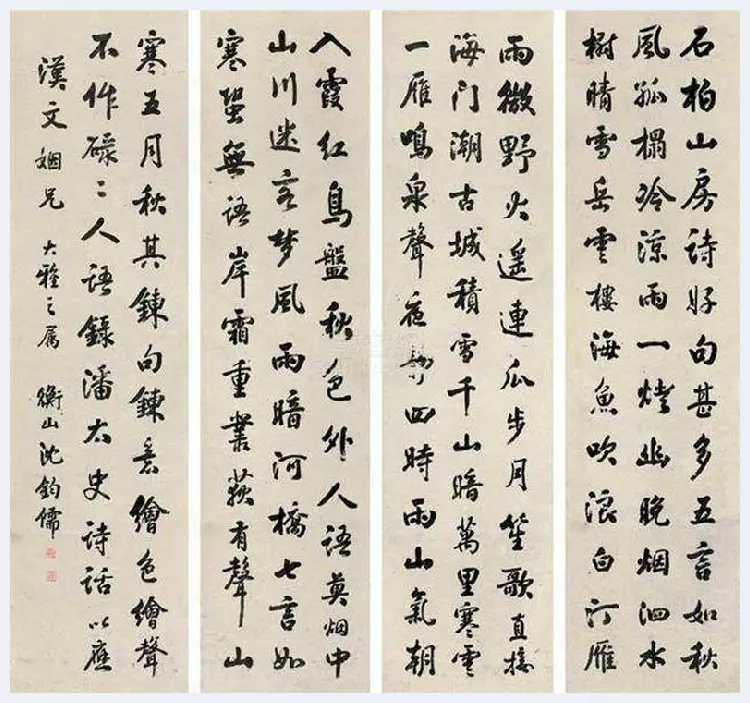 石柏山房詩好句甚多五言如秋
風孤榻冷涼雨一燈幽晚烟泗水
樹晴雪岳雲樓海魚吹浪白汀雁
雨微野火遥連瓜步月笙歌直接
海门潮古城積雪千山暗萬里寒雲
一雁鳴泉聲夜四時雨山氣朝
入霞红鳥盤秋色外人語莫烟中
山川迷客梦風雨暗河橋七言如
寒蛩無語岸霜重叢荻有聲山
寒五月秋其鍊句鍊意繪色繪聲
不作碌〻人語錄潘太史詩話以應
漢文姻兄 大雅之属 衡山沈鈞儒